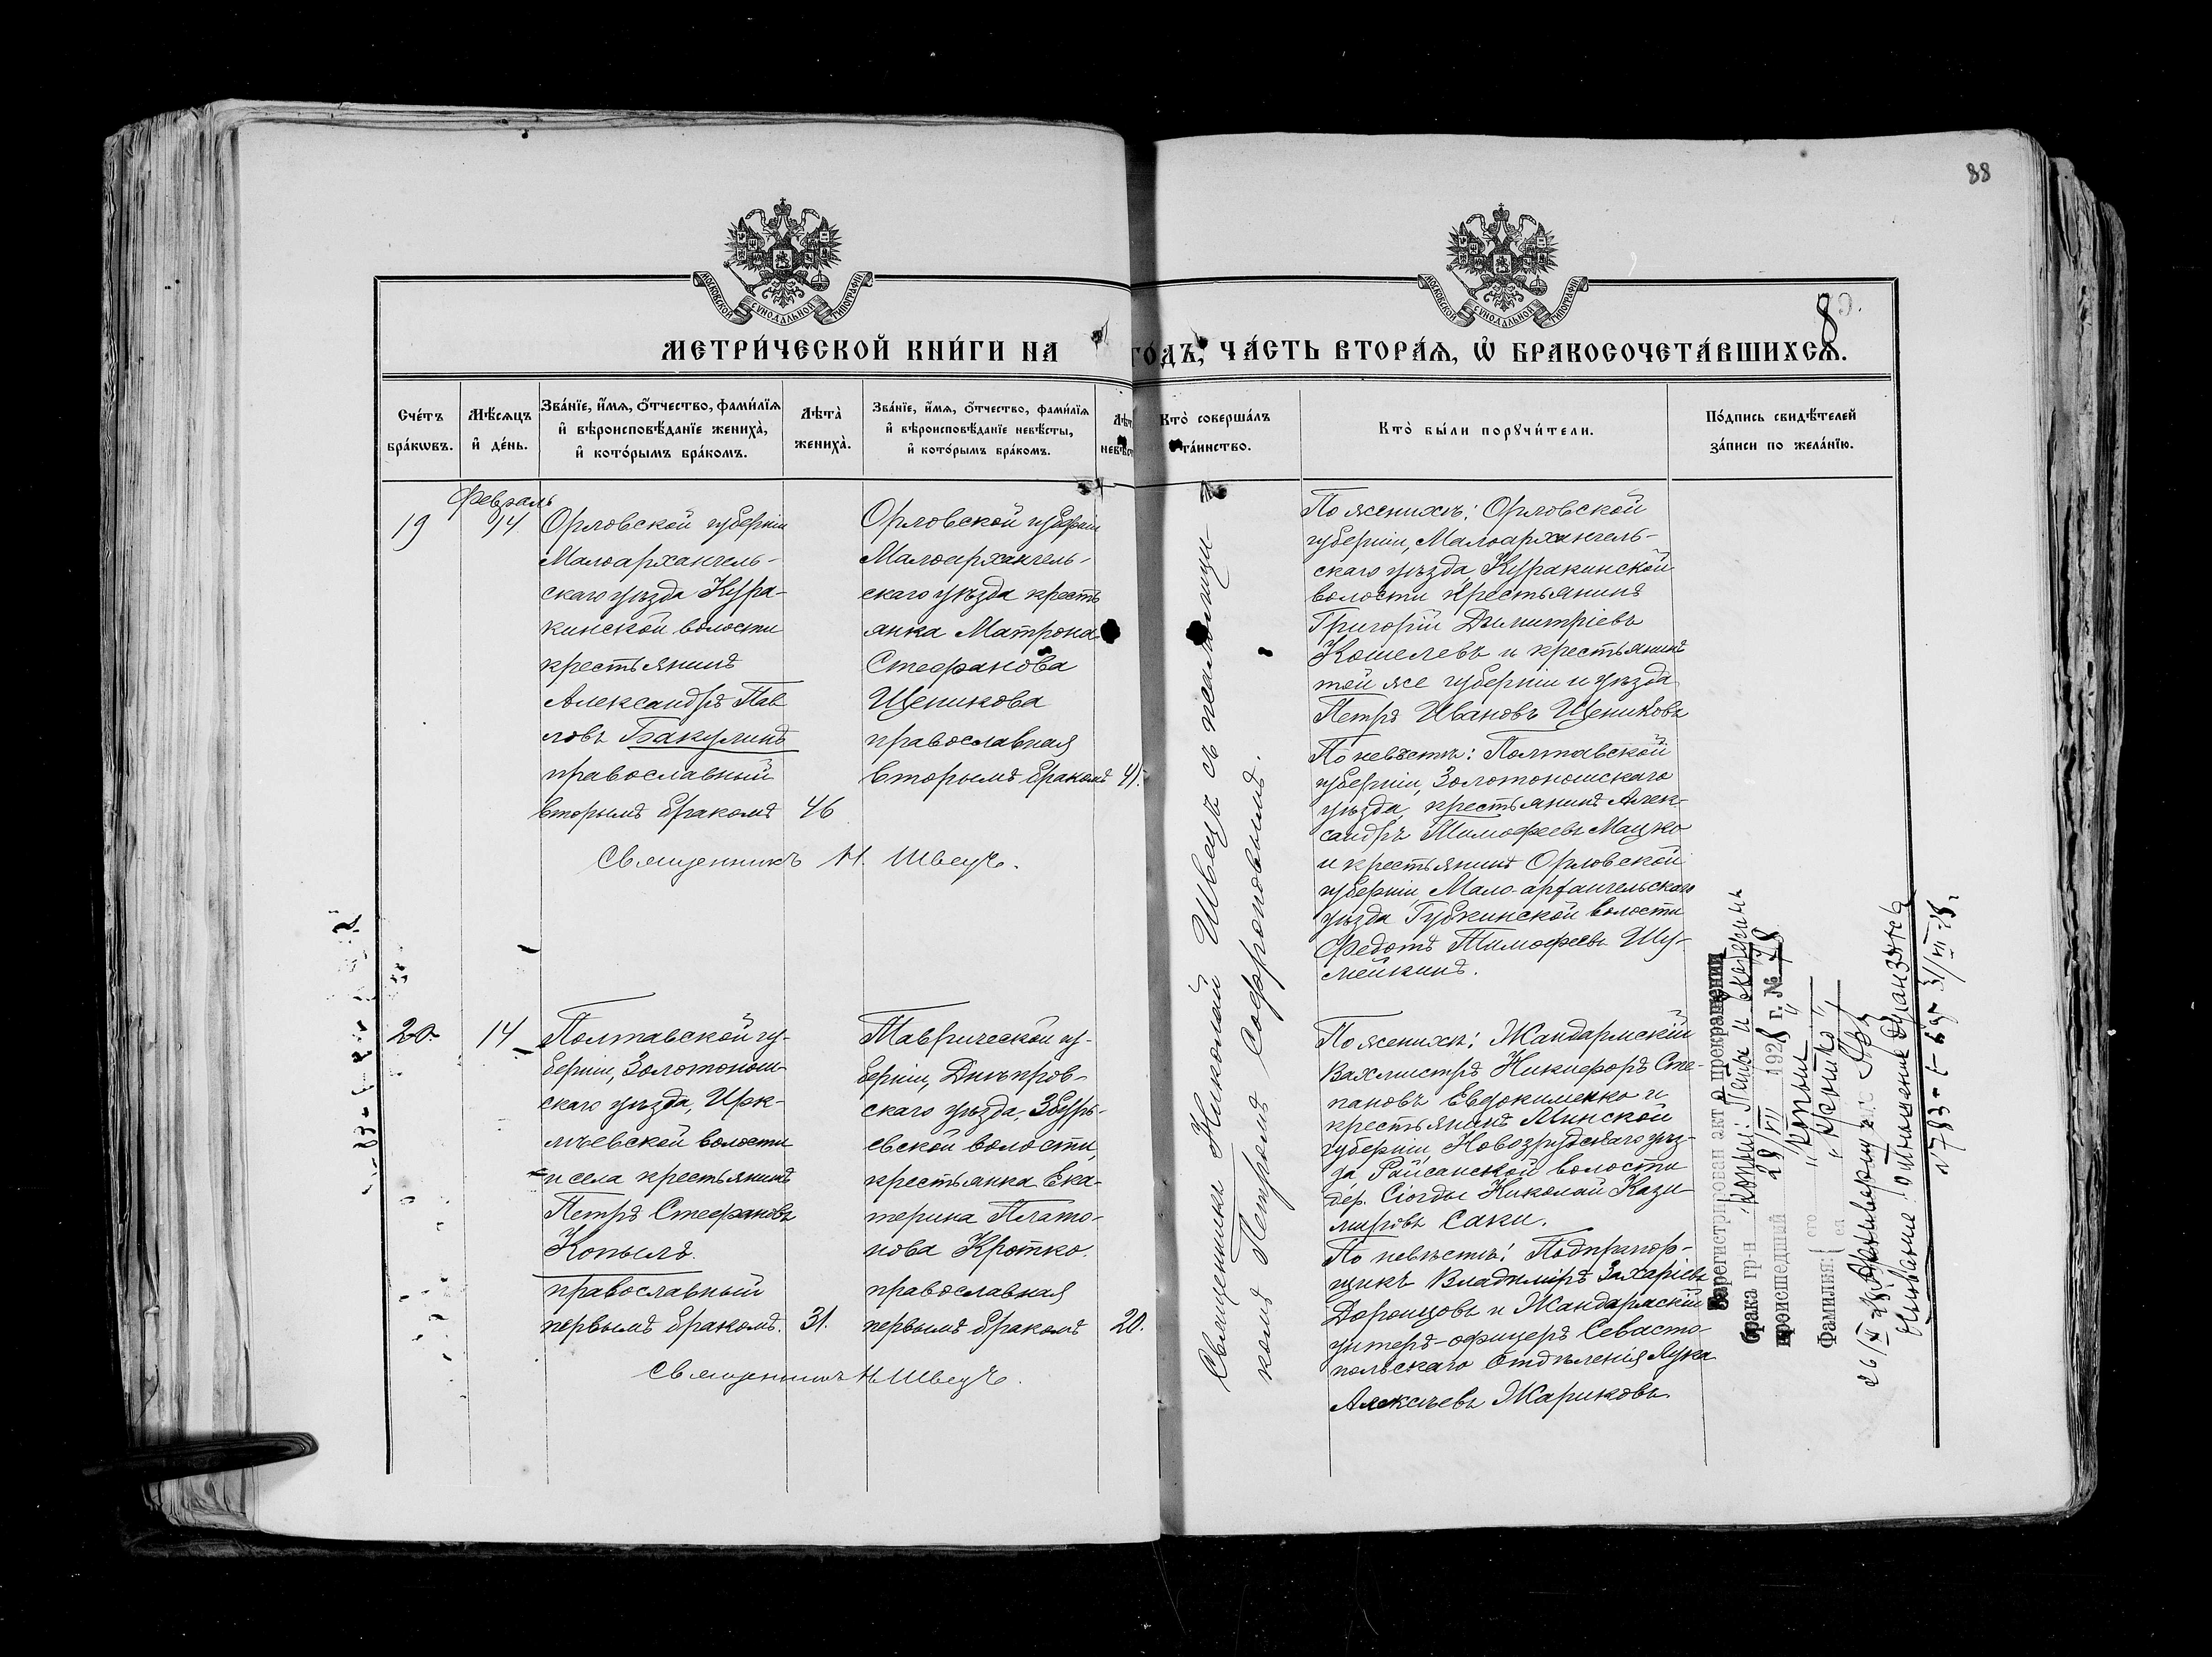 88
МОСКОВСКОЙ СѴНОДАЛЬНОЙ ТИПОГРАФІИ
МОСКОВСКОЙ СѴНОДАЛЬНОЙ ТИПОГРАФІИ
МЕТРИ́ЧЕСКОЙ КНИ́ГИ НА ГО́ДЪ, ЧА́СТЬ ВТОРА́Ѧ, Ѡ҆ БРАКОСОЧЕТА́ВШИХСѦ.
Сче́тъ бра́кѡвъ.
Мѣ́сяцъ и҆ де́нь.
Зва́нїе, и҆́мѧ, ѻ҆́тчество, фами́лїѧ и҆ вѣроисповѣ́данїе жениха̀, и҆ кото́рымъ бра́комъ.
Лѣта̀ жениха̀.
Зва́нїе, и҆́мѧ, ѻ҆́тчество, фами́лїѧ и҆ вѣроисповѣ́данїе невѣ́сты, и҆ кото́рымъ бра́комъ.
Кто̀ соверша́лъ та́инство.
Кто̀ бы́ли порꙋчи́тели.
По́дпись свидѣ́телей за́писи по жела́нїю.
Февраль
19
14
Орловской губерніи
Малоархангель-
скаго уѣзда Кура-
кинской волости
крестьянинъ
Александръ Пав
ловъ Бакулинъ
православный
вторымъ бракомъ
46
Орловской губерніи
Малоархангель-
скаго уѣзда кресть
янка Матрона
Стефанова
Щеникова
православная
вторымъ бракомъ
41.
Священникъ Н. Швецъ.
Священникъ Николай Швецъ съ псаломщи-
комъ Петромъ Софроновымъ.
По женихѣ: Орловской
губерніи, Малоархангель-
скаго уѣзда, Куракинской
волости крестьянинъ
Григорій Димитріевъ
Кошелевъ и крестьянинъ
той же губерніи и уѣзда
Петръ Ивановъ Щениковъ
По невѣстѣ: Полтавской
губерніи, Золотоношскаго
уѣзда, крестьянинъ Алек-
сандръ Тимофеевъ Мацко
и крестьянинъ Орловской
губерніи, Мало-архангельскаго
уѣзда Губкинской волости
Федотъ Тимофеевъ Шу-
мейкинъ.
20.
14
Полтавской гу-
берніи, Золотонош-
скаго уѣзда, Ирк-
лѣевской волости
и села крестьянинъ
Петръ Стефановъ
Копылъ.
православный
первымъ бракомъ.
31.
Таврической гу-
берніи, Днѣпров-
скаго уѣзда, Збурь-
евской волости,
крестьянка Ека-
терина Плато-
нова Кротко.
православная
первымъ бракомъ
20.
Священникъ Н Швецъ.
По женихѣ: Жандармскій
Вахмистръ Никифоръ Сте-
пановъ Евдокименко и
крестьянинъ Минской
губерніи, Новогрудскаго уѣз-
да Райчанской волости
дер. Николай Кази-
мировъ Саки.
По невѣстѣ: Подпрапор-
щикъ Владиміръ Захаріевъ
Доронцовъ и Жандармскій
унтеръ-офицеръ Севасто-
польскаго Отдѣленія Лука
Алексѣевъ Жариковъ.
Зарегистрирован акт о прекращении
брака гр-н Копыл: Петра и Екатерины
происшедший 28/VII 1928 г. № 78
Фамилия: его „Копыл“
ея „Кротко“